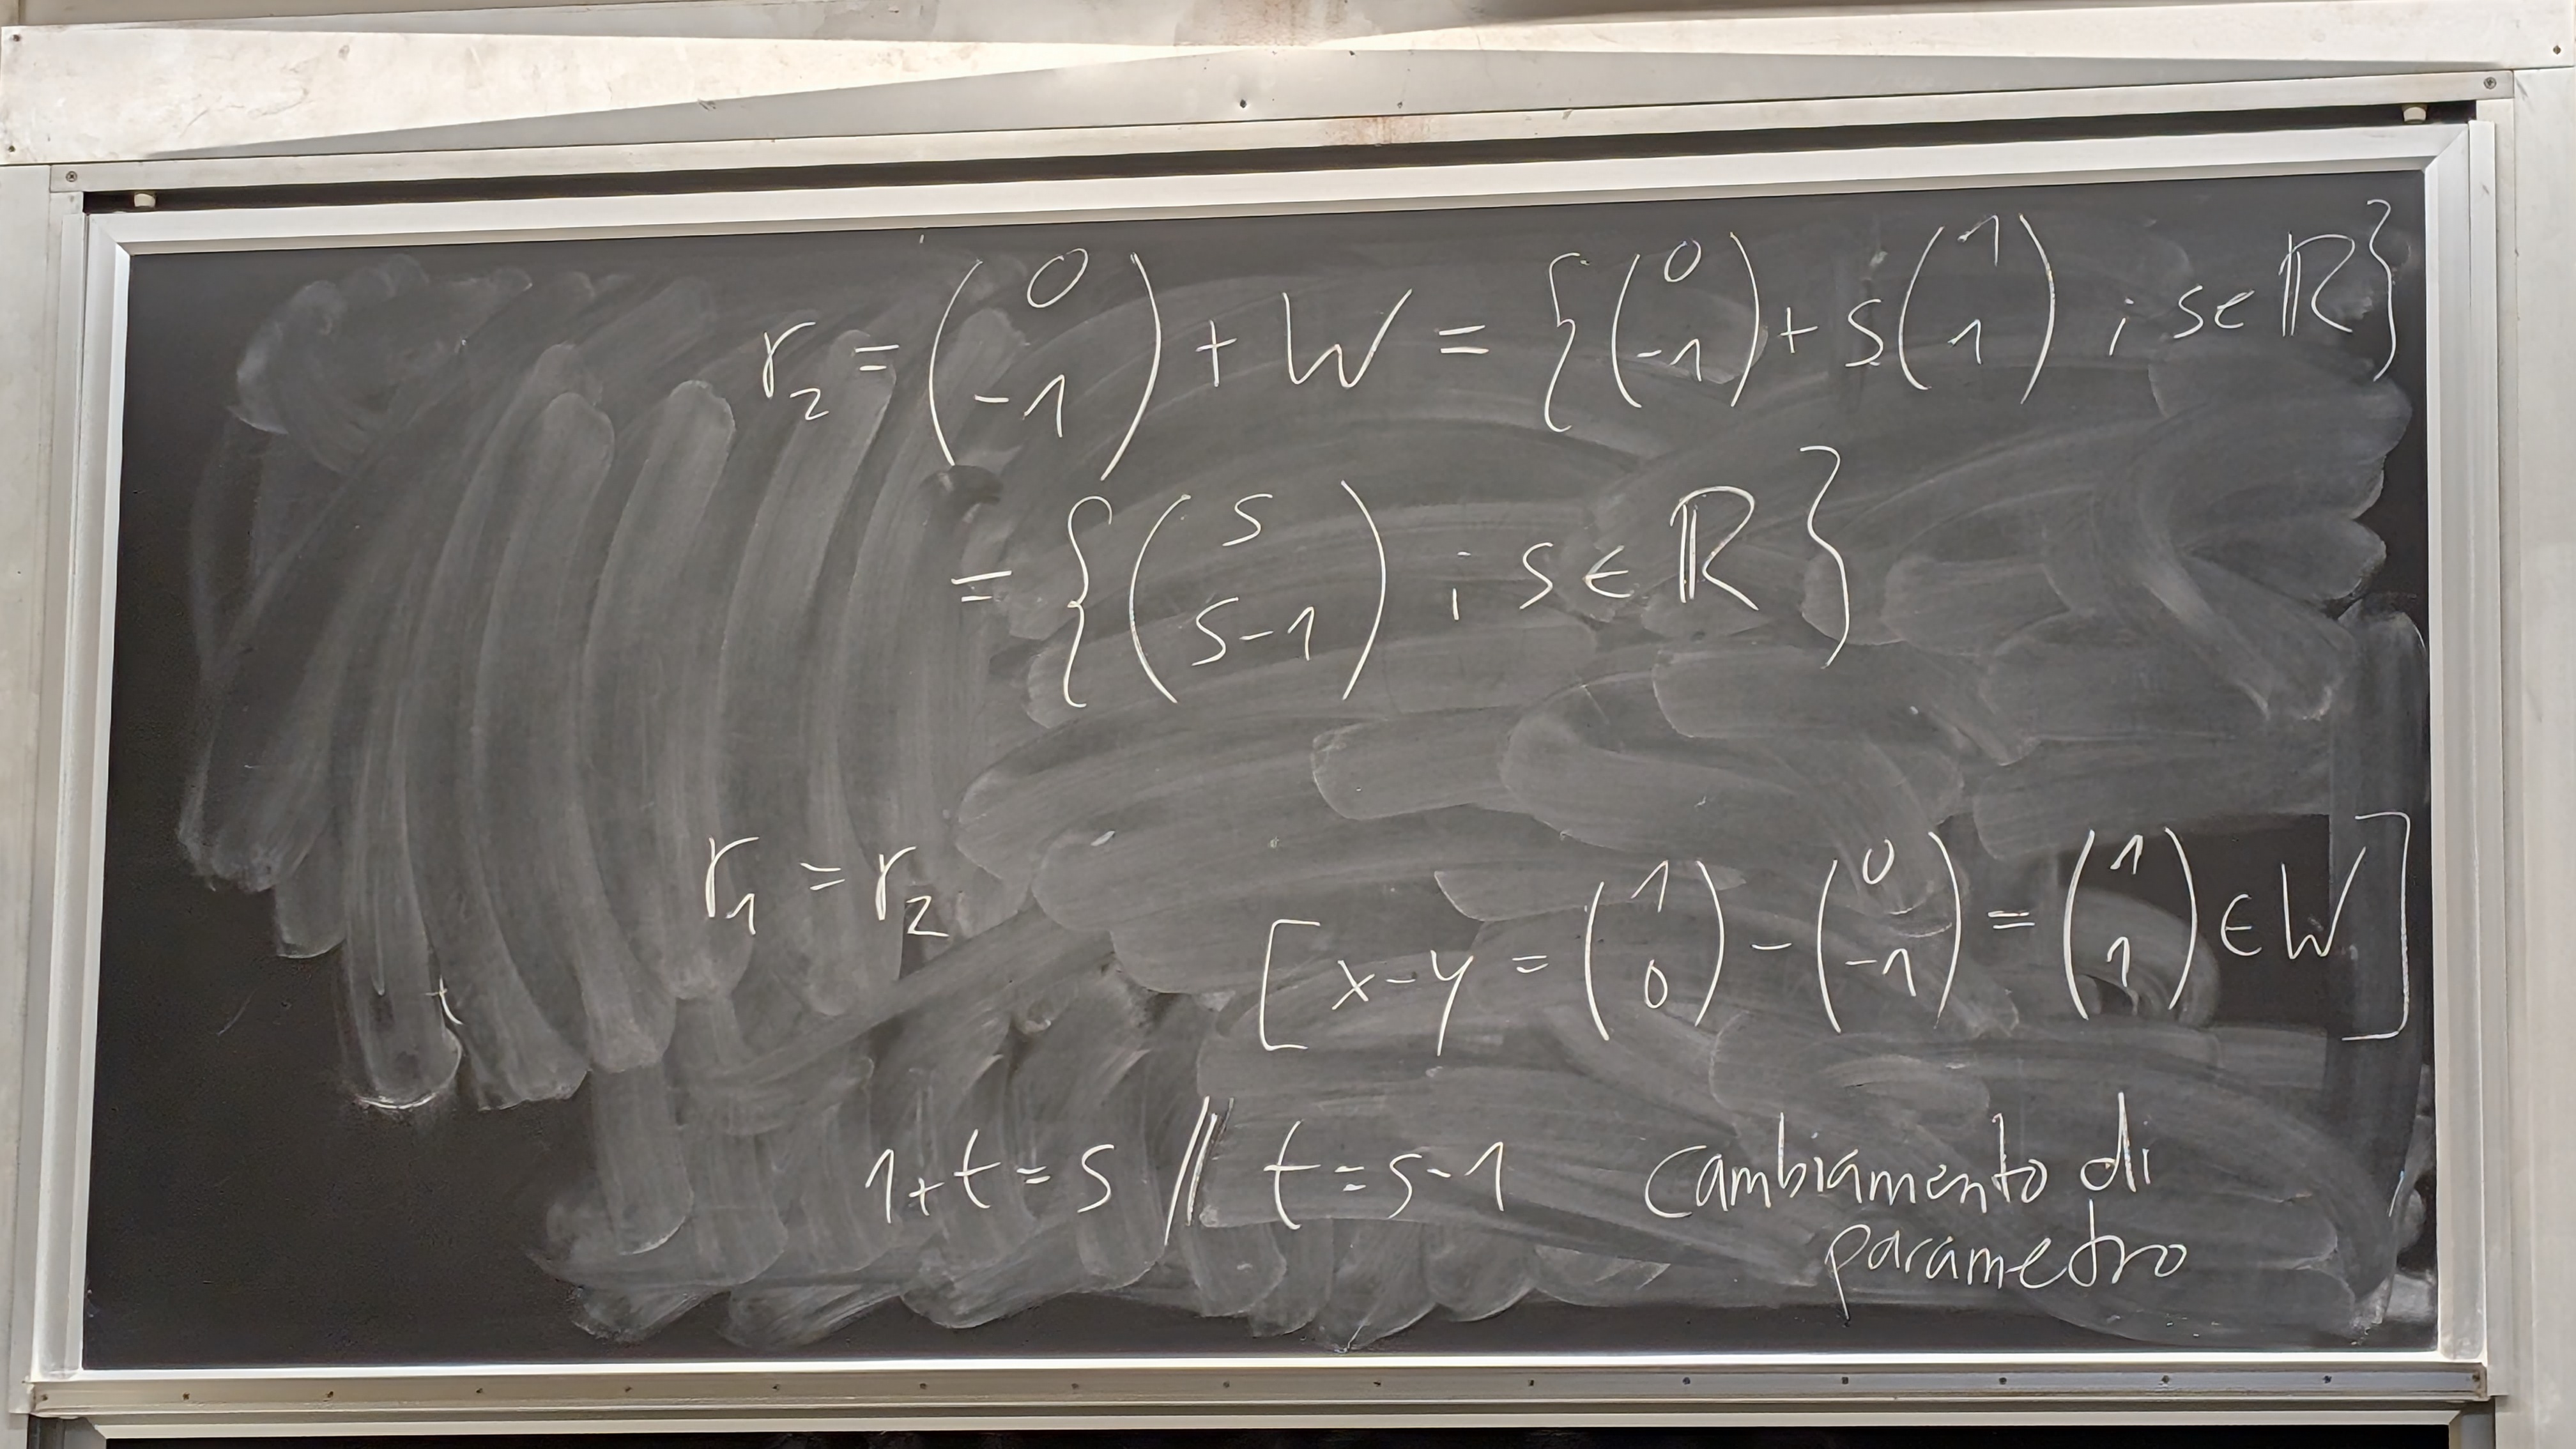 r₂ = (0 -1) + W = {(0 -1) + s(1 1) ; s ∈ ℝ}
= {(s s-1) ; s ∈ ℝ}
r₁ = r₂ [x-y = (1 0) - (0 -1) = (1 1) ∈ W]
1+t=s // t=s-1 cambiamento di
parametro